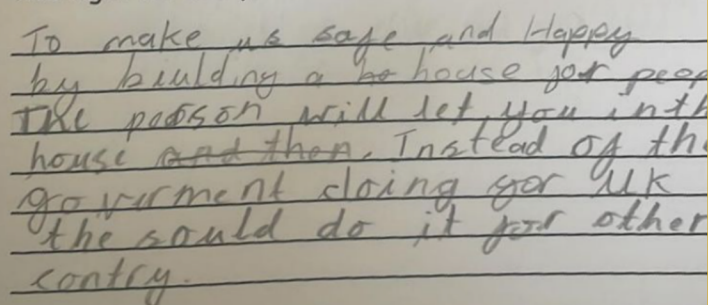 To make us safe and Happy
by beulding a ho house for peop
The poosson will let you inth
house and then. Instead of th
goverment doing gor uk
the sould do it for other
contry.